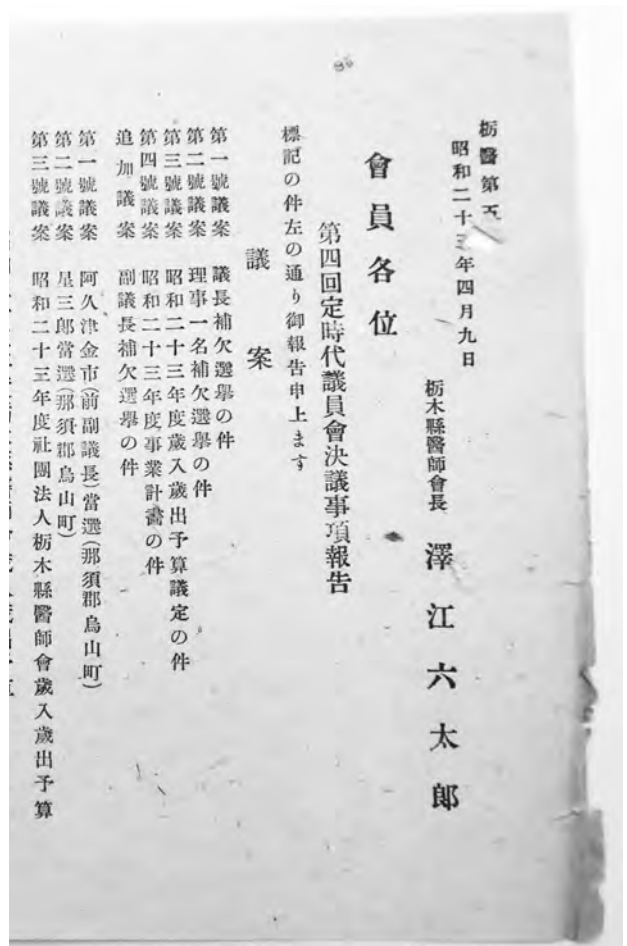 栃醫第五
昭和二十三年四月九日
栃木縣醫師會長　澤江六太郎
會員各位
第四回定時代議員會決議事項報告
標記の件左の通り御報告申上ます
議案
第一號議案　議長補欠選擧の件
第二號議案　理事一名補欠選擧の件
第三號議案　昭和二十三年度歲入歲出予算議定の件
第四號議案　昭和二十三年度事業計畵の件
追加議案　副議長補欠選擧の件
第一號議案　阿久津金市(前副議長)當選(那須郡烏山町)
第二號議案　星三郎當選(那須郡烏山町)
第三號議案　昭和二十三年度社團法人栃木縣醫師會歲入歲出予算